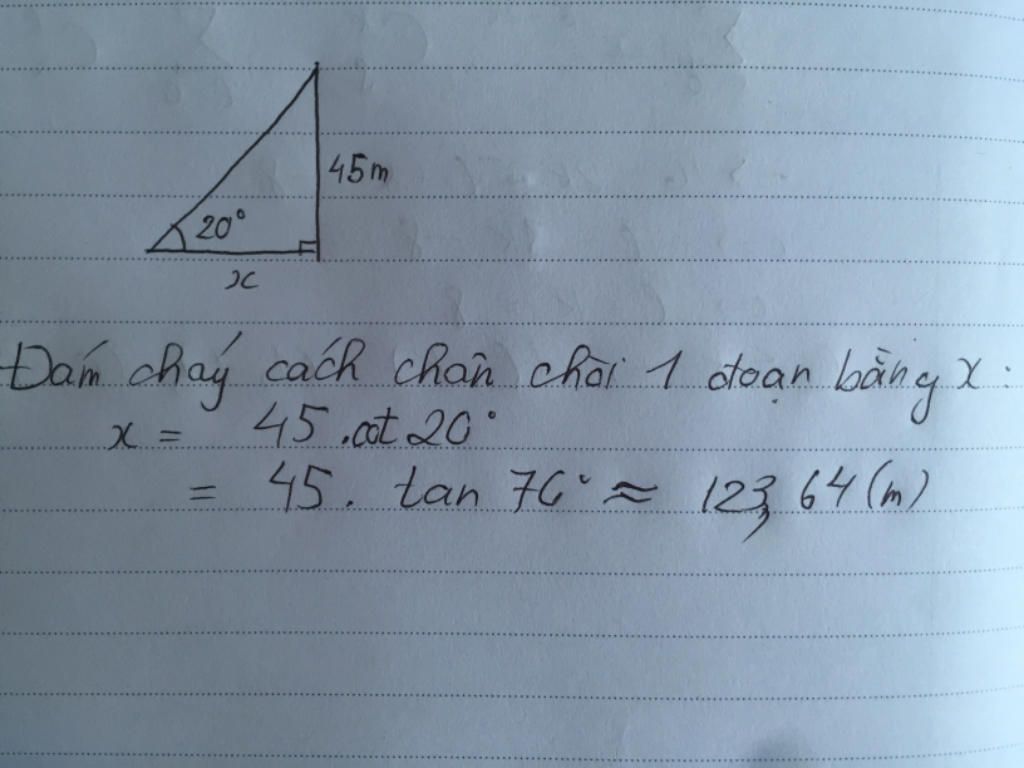 45m
20°
x
Đám cháy cách chân chòi 1 đoạn bằng x:
x = 45.cot 20°
= 45. tan 70° ≈ 123,64 (m)